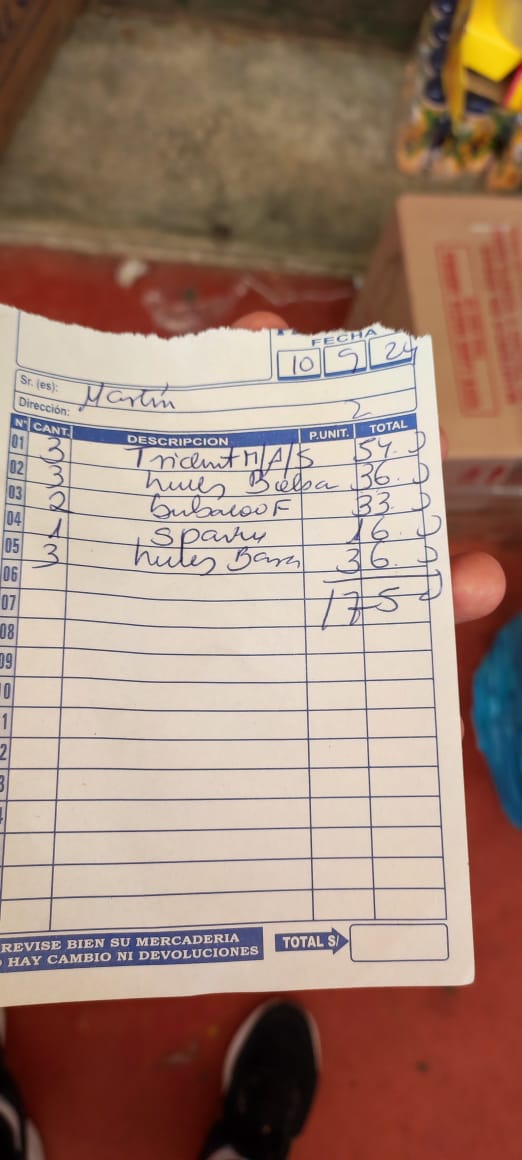 FECHA
10 9 24
Sr. (es): Martín
Dirección: 2
N° CANT. DESCRIPCION P.UNIT. TOTAL
01 3 Trident M/A/S 54.0
02 3 36.0
03 2 bubaloo F 33.0
04 1 Sparky 16.0
05 3 36.0
06 175
07
08
09
REVISE BIEN SU MERCADERIA
HAY CAMBIO NI DEVOLUCIONES
TOTAL S/